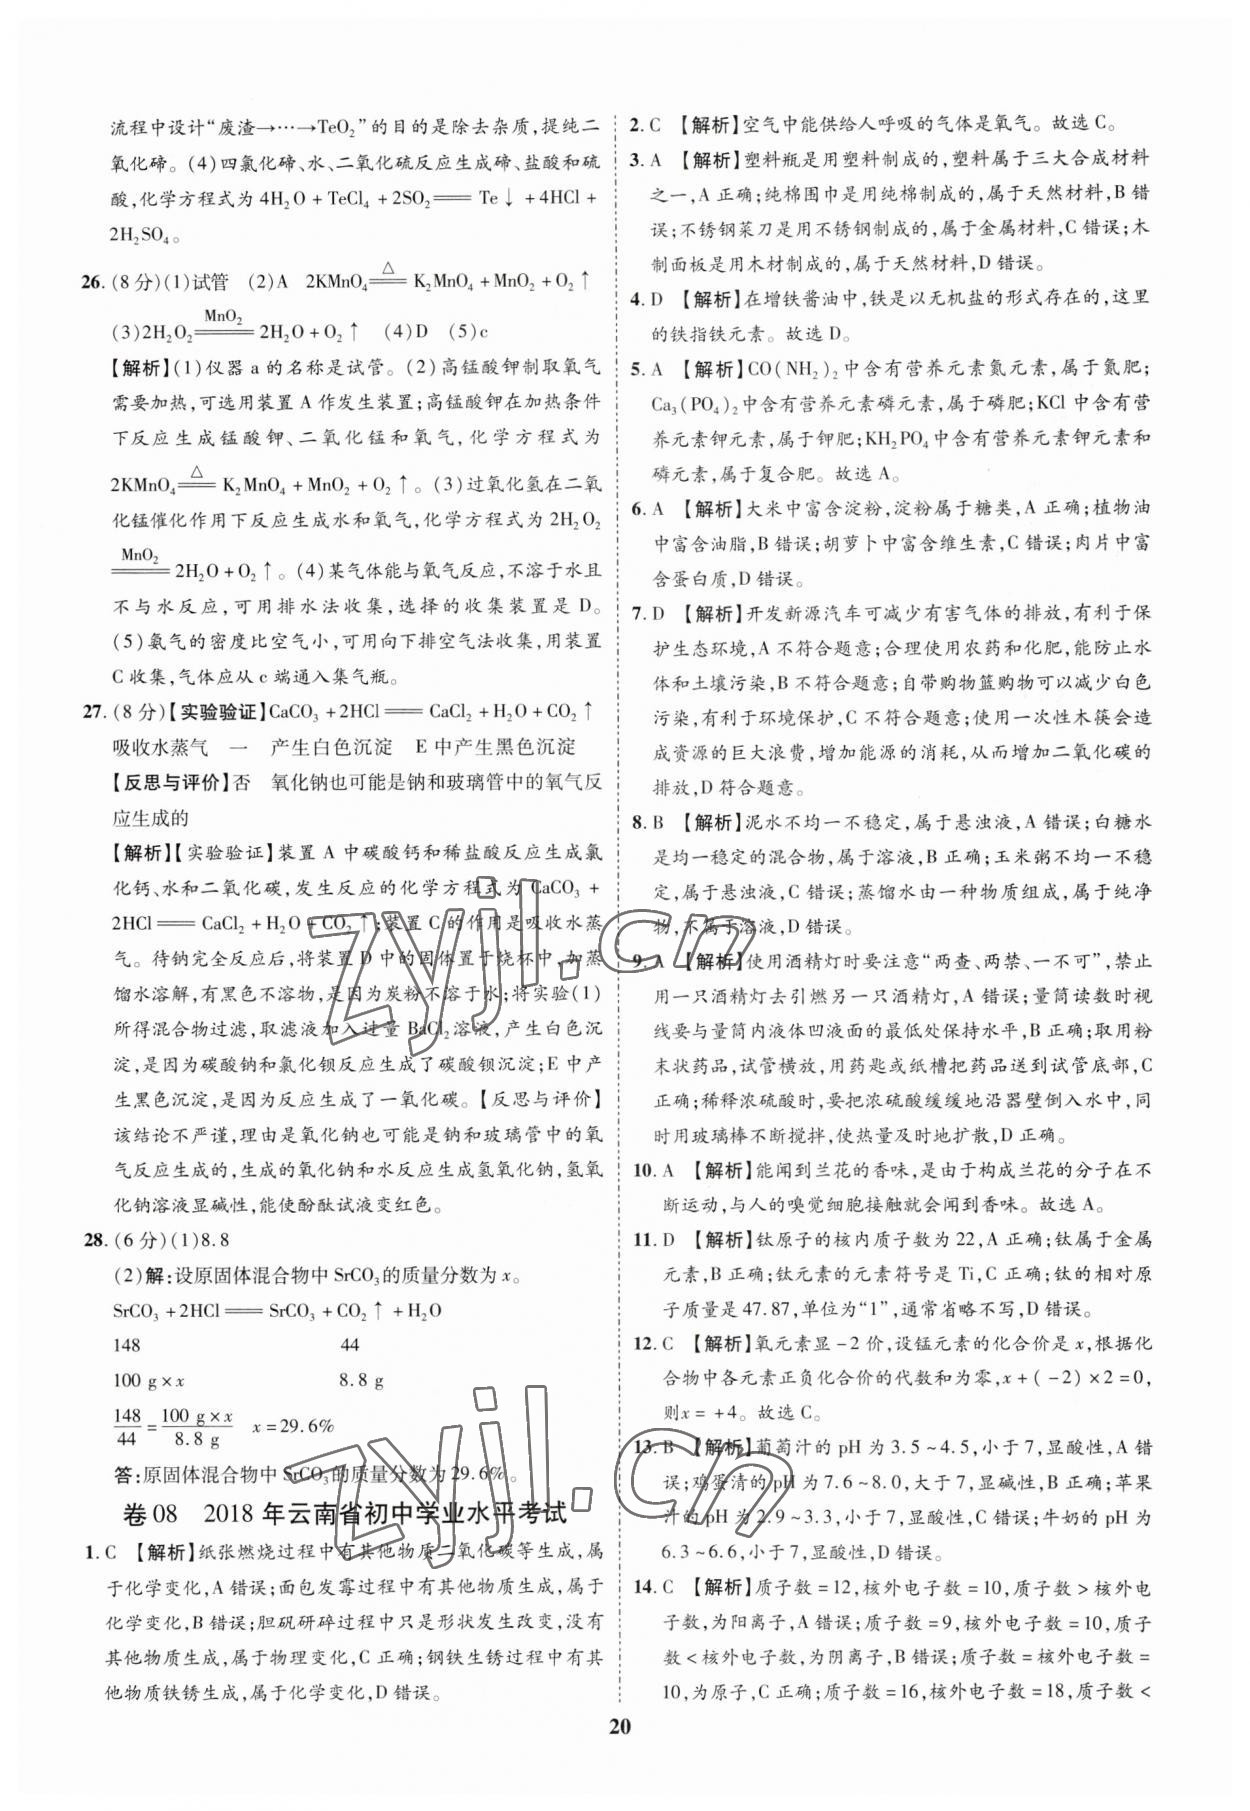 流程中设计“废渣→…→TeO₂”的目的是除去杂质,提纯二
氧化碲。(4)四氯化碲、水、二氧化硫反应生成碲、盐酸和硫
酸,化学方程式为 4H₂O + TeCl₄ + 2SO₂ ═══ Te↓ + 4HCl +
2H₂SO₄。
26. (8 分)(1)试管 (2)A 2KMnO₄ ═△═ K₂MnO₄ + MnO₂ + O₂↑
(3)2H₂O₂ ═MnO₂═ 2H₂O + O₂↑ (4)D (5)c
【解析】(1)仪器 a 的名称是试管。(2)高锰酸钾制取氧气
需要加热,可选用装置 A 作发生装置;高锰酸钾在加热条件
下反应生成锰酸钾、二氧化锰和氧气,化学方程式为
2KMnO₄ ═△═ K₂MnO₄ + MnO₂ + O₂↑。(3)过氧化氢在二氧
化锰催化作用下反应生成水和氧气,化学方程式为 2H₂O₂
═MnO₂═ 2H₂O + O₂↑。(4)某气体能与氧气反应,不溶于水且
不与水反应,可用排水法收集,选择的收集装置是 D。
(5)氨气的密度比空气小,可用向下排空气法收集,用装置
C 收集,气体应从 c 端通入集气瓶。
27. (8 分)【实验验证】CaCO₃ + 2HCl ═══ CaCl₂ + H₂O + CO₂↑
吸收水蒸气 一 产生白色沉淀 E 中产生黑色沉淀
【反思与评价】否 氧化钠也可能是钠和玻璃管中的氧气反
应生成的
【解析】【实验验证】装置 A 中碳酸钙和稀盐酸反应生成氯
化钙、水和二氧化碳,发生反应的化学方程式为 CaCO₃ +
2HCl ═══ CaCl₂ + H₂O + CO₂↑;装置 C 的作用是吸收水蒸
气。待钠完全反应后,将装置 D 中的固体置于烧杯中,加蒸
馏水溶解,有黑色不溶物,是因为炭粉不溶于水;将实验(1)
所得混合物过滤,取滤液加入过量 BaCl₂ 溶液,产生白色沉
淀,是因为碳酸钠和氯化钡反应生成了碳酸钡沉淀;E 中产
生黑色沉淀,是因为反应生成了一氧化碳。【反思与评价】
该结论不严谨,理由是氧化钠也可能是钠和玻璃管中的氧
气反应生成的,生成的氧化钠和水反应生成氢氧化钠,氢氧
化钠溶液显碱性,能使酚酞试液变红色。
28. (6 分)(1)8.8
(2)解:设原固体混合物中 SrCO₃的质量分数为 x。
SrCO₃ + 2HCl ═══ SrCO₃ + CO₂↑ + H₂O
148 44
100 g × x 8.8 g
148/44 = 100 g × x/8.8 g x = 29.6%
答:原固体混合物中 SrCO₃的质量分数为 29.6%。
卷 08 2018 年云南省初中学业水平考试
1. C 【解析】纸张燃烧过程中有其他物质二氧化碳等生成,属
于化学变化,A 错误;面包发霉过程中有其他物质生成,属于
化学变化,B 错误;胆矾研碎过程中只是形状发生改变,没有
其他物质生成,属于物理变化,C 正确;钢铁生锈过程中有其
他物质铁锈生成,属于化学变化,D 错误。
2. C 【解析】空气中能供给人呼吸的气体是氧气。故选 C。
3. A 【解析】塑料瓶是用塑料制成的,塑料属于三大合成材料
之一,A 正确;纯棉围巾是用纯棉制成的,属于天然材料,B 错
误;不锈钢菜刀是用不锈钢制成的,属于金属材料,C 错误;木
制面板是用木材制成的,属于天然材料,D 错误。
4. D 【解析】在增铁酱油中,铁是以无机盐的形式存在的,这里
的铁指铁元素。故选 D。
5. A 【解析】CO(NH₂)₂ 中含有营养元素氮元素,属于氮肥;
Ca₃(PO₄)₂ 中含有营养元素磷元素,属于磷肥;KCl 中含有营
养元素钾元素,属于钾肥;KH₂PO₄ 中含有营养元素钾元素和
磷元素,属于复合肥。故选 A。
6. A 【解析】大米中富含淀粉,淀粉属于糖类,A 正确;植物油
中富含油脂,B 错误;胡萝卜中富含维生素,C 错误;肉片中富
含蛋白质,D 错误。
7. D 【解析】开发新源汽车可减少有害气体的排放,有利于保
护生态环境,A 不符合题意;合理使用农药和化肥,能防止水
体和土壤污染,B 不符合题意;自带购物篮购物可以减少白色
污染,有利于环境保护,C 不符合题意;使用一次性木筷会造
成资源的巨大浪费,增加能源的消耗,从而增加二氧化碳的
排放,D 符合题意。
8. B 【解析】泥水不均一不稳定,属于悬浊液,A 错误;白糖水
是均一稳定的混合物,属于溶液,B 正确;玉米粥不均一不稳
定,属于悬浊液,C 错误;蒸馏水由一种物质组成,属于纯净
物,不属于溶液,D 错误。
9. A 【解析】使用酒精灯时要注意“两查、两禁、一不可”,禁止
用一只酒精灯去引燃另一只酒精灯,A 错误;量筒读数时视
线要与量筒内液体凹液面的最低处保持水平,B 正确;取用粉
末状药品,试管横放,用药匙或纸槽把药品送到试管底部,C
正确;稀释浓硫酸时,要把浓硫酸缓缓地沿器壁倒入水中,同
时用玻璃棒不断搅拌,使热量及时地扩散,D 正确。
10. A 【解析】能闻到兰花的香味,是由于构成兰花的分子在不
断运动,与人的嗅觉细胞接触就会闻到香味。故选 A。
11. D 【解析】钛原子的核内质子数为 22,A 正确;钛属于金属
元素,B 正确;钛元素的元素符号是 Ti,C 正确;钛的相对原
子质量是 47.87,单位为“1”,通常省略不写,D 错误。
12. C 【解析】氧元素显 -2 价,设锰元素的化合价是 x,根据化
合物中各元素正负化合价的代数和为零,x + ( -2) × 2 = 0,
则x = +4。故选 C。
13. B 【解析】葡萄汁的 pH 为 3.5 ~ 4.5,小于 7,显酸性,A 错
误;鸡蛋清的 pH 为 7.6 ~ 8.0,大于 7,显碱性,B 正确;苹果
汁的 pH 为 2.9 ~ 3.3,小于 7,显酸性,C 错误;牛奶的 pH 为
6.3 ~ 6.6,小于 7,显酸性,D 错误。
14. C 【解析】质子数 = 12,核外电子数 = 10,质子数 > 核外电
子数,为阳离子,A 错误;质子数 = 9,核外电子数 = 10,质子
数 < 核外电子数,为阴离子,B 错误;质子数 = 核外电子数 =
10,为原子,C 正确;质子数 = 16,核外电子数 = 18,质子数 <
20
zyjl.cn
zyjl.cn